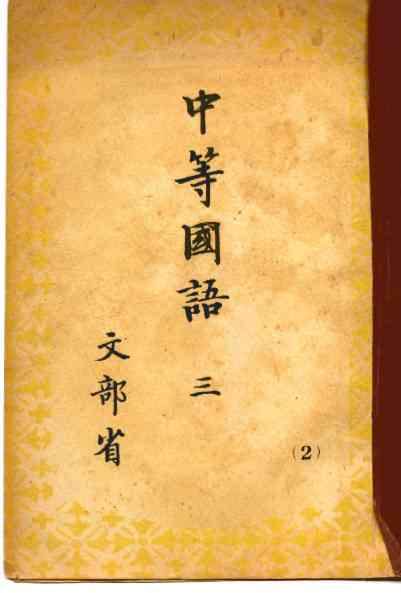 中等國語 三
文部省
(2)